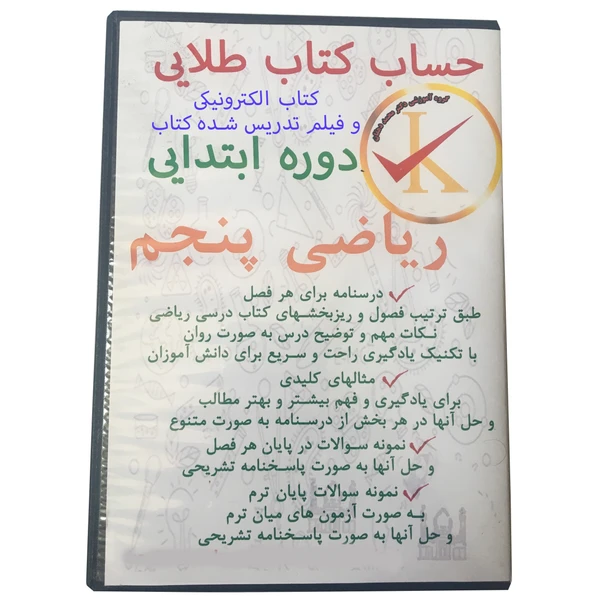 حساب کتاب طلایی
کتاب الکترونیکی
و فیلم تدریس شده کتاب
دوره ابتدایی
گروه آموزشی دکتر
K
ریاضی پنجم
درسنامه برای هر فصل
طبق ترتیب فصول و ریزبخشهای کتاب درسی ریاضی
نکات مهم و توضیح درس به صورت روان
با تکنیک یادگیری راحت و سریع برای دانش آموزان
مثالهای کلیدی
برای یادگیری و فهم بیشتر و بهتر مطالب
و حل آنها در هر بخش از درسنامه به صورت متنوع
نمونه سوالات در پایان هر فصل
و حل آنها به صورت پاسخنامه تشریحی
نمونه سوالات پایان ترم
به صورت آزمون های میان ترم
و حل آنها به صورت پاسخنامه تشریحی